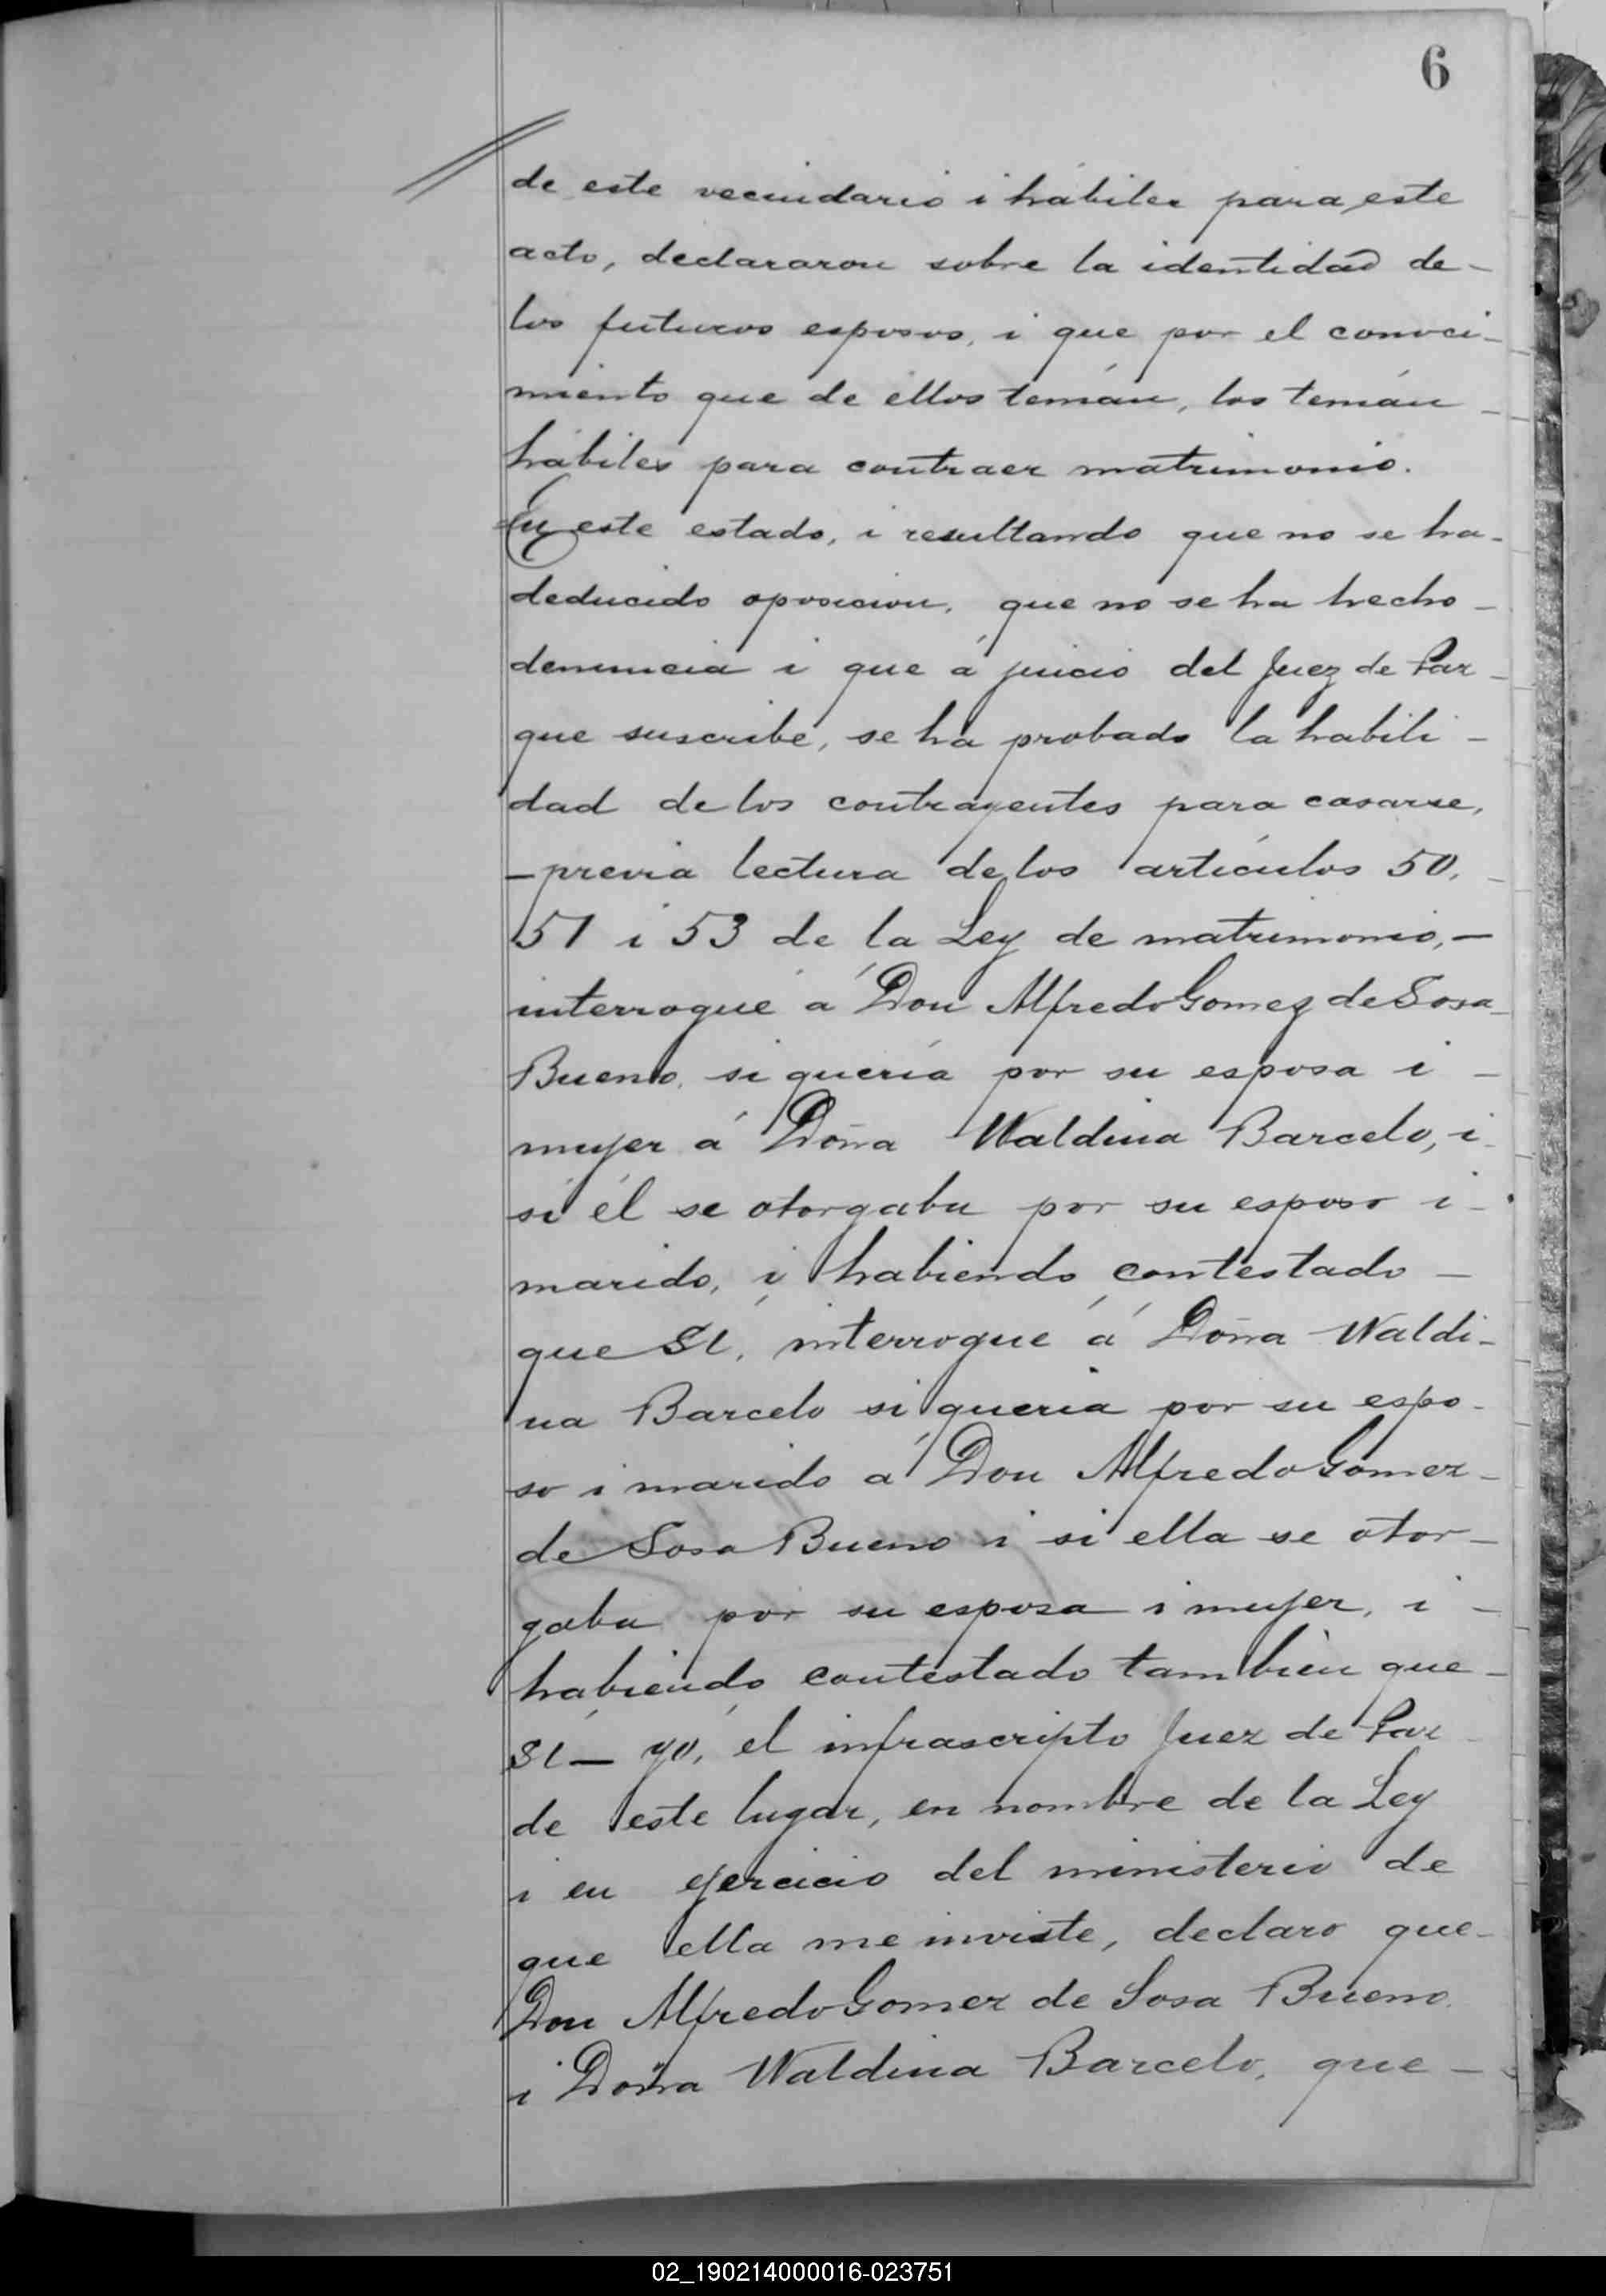 6
de este vecindario i hábiles para este
acto, declararon sobre la identidad de -
los futuros esposos, i que por el conoci-
miento que de ellos tenían, los tenían -
hábiles para contraer matrimonio.
En este estado, i resultando que no se ha -
deducido oposicion, que no se ha hecho -
denuncia i que á juicio del Juez de Paz -
que suscribe, se ha probado la habili -
dad de los contrayentes para casarse,
- previa lectura de los artículos 50, -
51 i 53 de la Ley de matrimonio, -
interrogué á Don Alfredo Gomez de Sosa
Bueno, si quería por su esposa i -
mujer á Doña Waldina Barcelo, i
si él se otorgaba por su esposo i -
marido, i habiendo contestado -
que Sí, interrogué á Doña Waldi-
na Barcelo si quería por su espo-
so i marido á Don Alfredo Gomez -
de Sosa Bueno i si ella se otor-
gaba por su esposa i mujer, i -
habiendo contestado tambien que -
Sí - yó, el infrascripto Juez de Paz
de este lugar, en nombre de la Ley
i en ejercicio del ministerio de
que ella me inviste, declaro que -
Don Alfredo Gomez de Sosa Bueno
i Doña Waldina Barcelo, que -
02_190214000016-023751